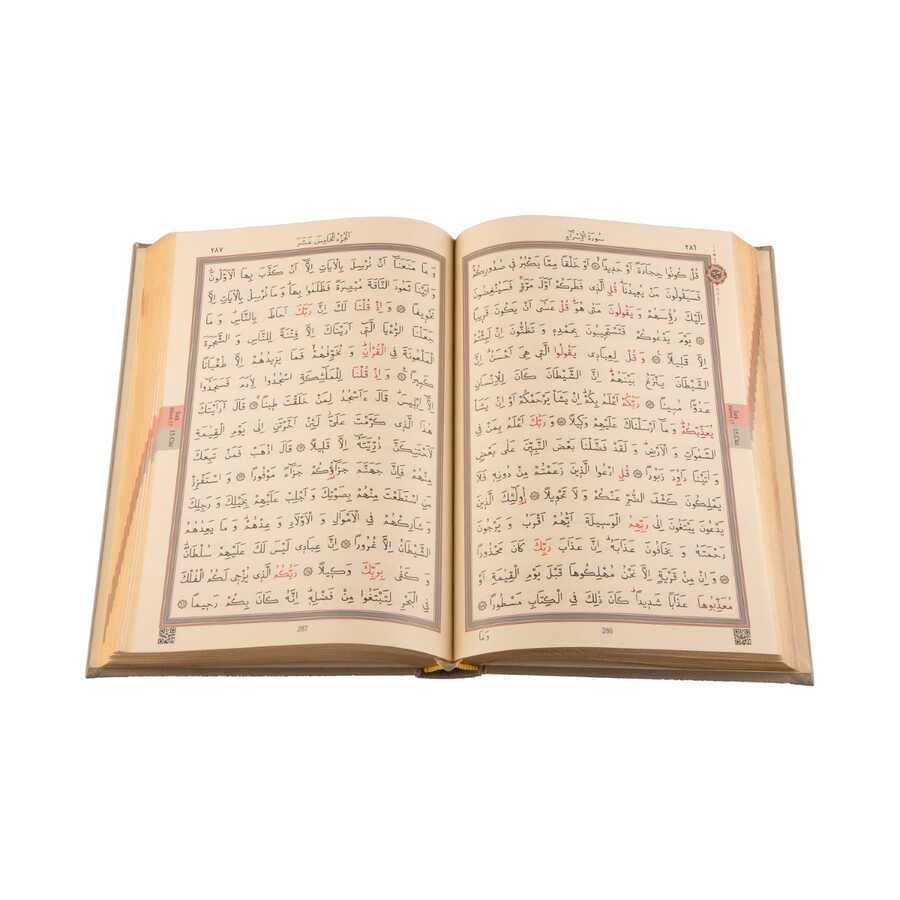 سُورَةُ الْاِسْرَاءِ ٢٨٦
قُلْ كُونُوا حِجَارَةً اَوْ حَدِيدًا ۞ اَوْ خَلْقًا مِمَّا يَكْبُرُ فِى صُدُورِكُمْ
فَسَيَقُولُونَ مَنْ يُعِيدُنَا قُلِ الَّذِى فَطَرَكُمْ اَوَّلَ مَرَّةٍ فَسَيُنْغِضُونَ
اِلَيْكَ رُؤُسَهُمْ وَيَقُولُونَ مَتٰى هُوَ قُلْ عَسٰى اَنْ يَكُونَ قَرِيبًا
۞ يَوْمَ يَدْعُوكُمْ فَتَسْتَجِيبُونَ بِحَمْدِهِ وَتَظُنُّونَ اِنْ لَبِثْتُمْ
اِلَّا قَلِيلًا ۞ وَقُلْ لِعِبَادِى يَقُولُوا الَّتِى هِىَ اَحْسَنُ اِنَّ
الشَّيْطَانَ يَنْزَغُ بَيْنَهُمْ اِنَّ الشَّيْطَانَ كَانَ لِلْاِنْسَانِ
عَدُوًّا مُبِينًا ۞ رَبُّكُمْ اَعْلَمُ بِكُمْ اِنْ يَشَأْ يَرْحَمْكُمْ اَوْ اِنْ يَشَأْ
يُعَذِّبْكُمْ وَمَا اَرْسَلْنَاكَ عَلَيْهِمْ وَكِيلًا ۞ وَرَبُّكَ اَعْلَمُ بِمَنْ فِى
السَّمٰوَاتِ وَالْاَرْضِ وَلَقَدْ فَضَّلْنَا بَعْضَ النَّبِيّٖنَ عَلٰى بَعْضٍ
وَاٰتَيْنَا دَاوُدَ زَبُورًا ۞ قُلِ ادْعُوا الَّذِينَ زَعَمْتُمْ مِنْ دُونِهِ فَلَا
يَمْلِكُونَ كَشْفَ الضُّرِّ عَنْكُمْ وَلَا تَحْوِيلًا ۞ اُولٰئِكَ الَّذِينَ
يَدْعُونَ يَبْتَغُونَ اِلٰى رَبِّهِمُ الْوَسِيلَةَ اَيُّهُمْ اَقْرَبُ وَيَرْجُونَ
رَحْمَتَهُ وَيَخَافُونَ عَذَابَهُ اِنَّ عَذَابَ رَبِّكَ كَانَ مَحْذُورًا
۞ وَاِنْ مِنْ قَرْيَةٍ اِلَّا نَحْنُ مُهْلِكُوهَا قَبْلَ يَوْمِ الْقِيٰمَةِ اَوْ
مُعَذِّبُوهَا عَذَابًا شَدِيدًا كَانَ ذٰلِكَ فِى الْكِتَابِ مَسْطُورًا ۞
286
وَمَا
اَلْجُزْءُ الْخَامِسَ عَشَرَ ٢٨٧
وَمَا مَنَعَنَا اَنْ نُرْسِلَ بِالْاٰيَاتِ اِلَّا اَنْ كَذَّبَ بِهَا الْاَوَّلُونَ
وَاٰتَيْنَا ثَمُودَ النَّاقَةَ مُبْصِرَةً فَظَلَمُوا بِهَا وَمَا نُرْسِلُ بِالْاٰيَاتِ اِلَّا
تَخْوِيفًا ۞ وَاِذْ قُلْنَا لَكَ اِنَّ رَبَّكَ اَحَاطَ بِالنَّاسِ وَمَا
جَعَلْنَا الرُّءْيَا الَّتِى اَرَيْنَاكَ اِلَّا فِتْنَةً لِلنَّاسِ وَالشَّجَرَةَ
الْمَلْعُونَةَ فِى الْقُرْاٰنِ وَنُخَوِّفُهُمْ فَمَا يَزِيدُهُمْ اِلَّا طُغْيَانًا
كَبِيرًا ۞ وَاِذْ قُلْنَا لِلْمَلٰئِكَةِ اسْجُدُوا لِاٰدَمَ فَسَجَدُوا
اِلَّا اِبْلِيسَ قَالَ ءَاَسْجُدُ لِمَنْ خَلَقْتَ طِينًا ۞ قَالَ اَرَاَيْتَكَ
هٰذَا الَّذِى كَرَّمْتَ عَلَىَّ لَئِنْ اَخَّرْتَنِ اِلٰى يَوْمِ الْقِيٰمَةِ
لَاَحْتَنِكَنَّ ذُرِّيَّتَهُ اِلَّا قَلِيلًا ۞ قَالَ اذْهَبْ فَمَنْ تَبِعَكَ
مِنْهُمْ فَاِنَّ جَهَنَّمَ جَزَاؤُكُمْ جَزَاءً مَوْفُورًا ۞ وَاسْتَفْزِزْ
مَنِ اسْتَطَعْتَ مِنْهُمْ بِصَوْتِكَ وَاَجْلِبْ عَلَيْهِمْ بِخَيْلِكَ وَرَجِلِكَ
وَشَارِكْهُمْ فِى الْاَمْوَالِ وَالْاَوْلَادِ وَعِدْهُمْ وَمَا يَعِدُهُمُ
الشَّيْطَانُ اِلَّا غُرُورًا ۞ اِنَّ عِبَادِى لَيْسَ لَكَ عَلَيْهِمْ سُلْطَانٌ
وَكَفٰى بِرَبِّكَ وَكِيلًا ۞ رَبُّكُمُ الَّذِى يُزْجِى لَكُمُ الْفُلْكَ
فِى الْبَحْرِ لِتَبْتَغُوا مِنْ فَضْلِهِ اِنَّهُ كَانَ بِكُمْ رَحِيمًا ۞
287